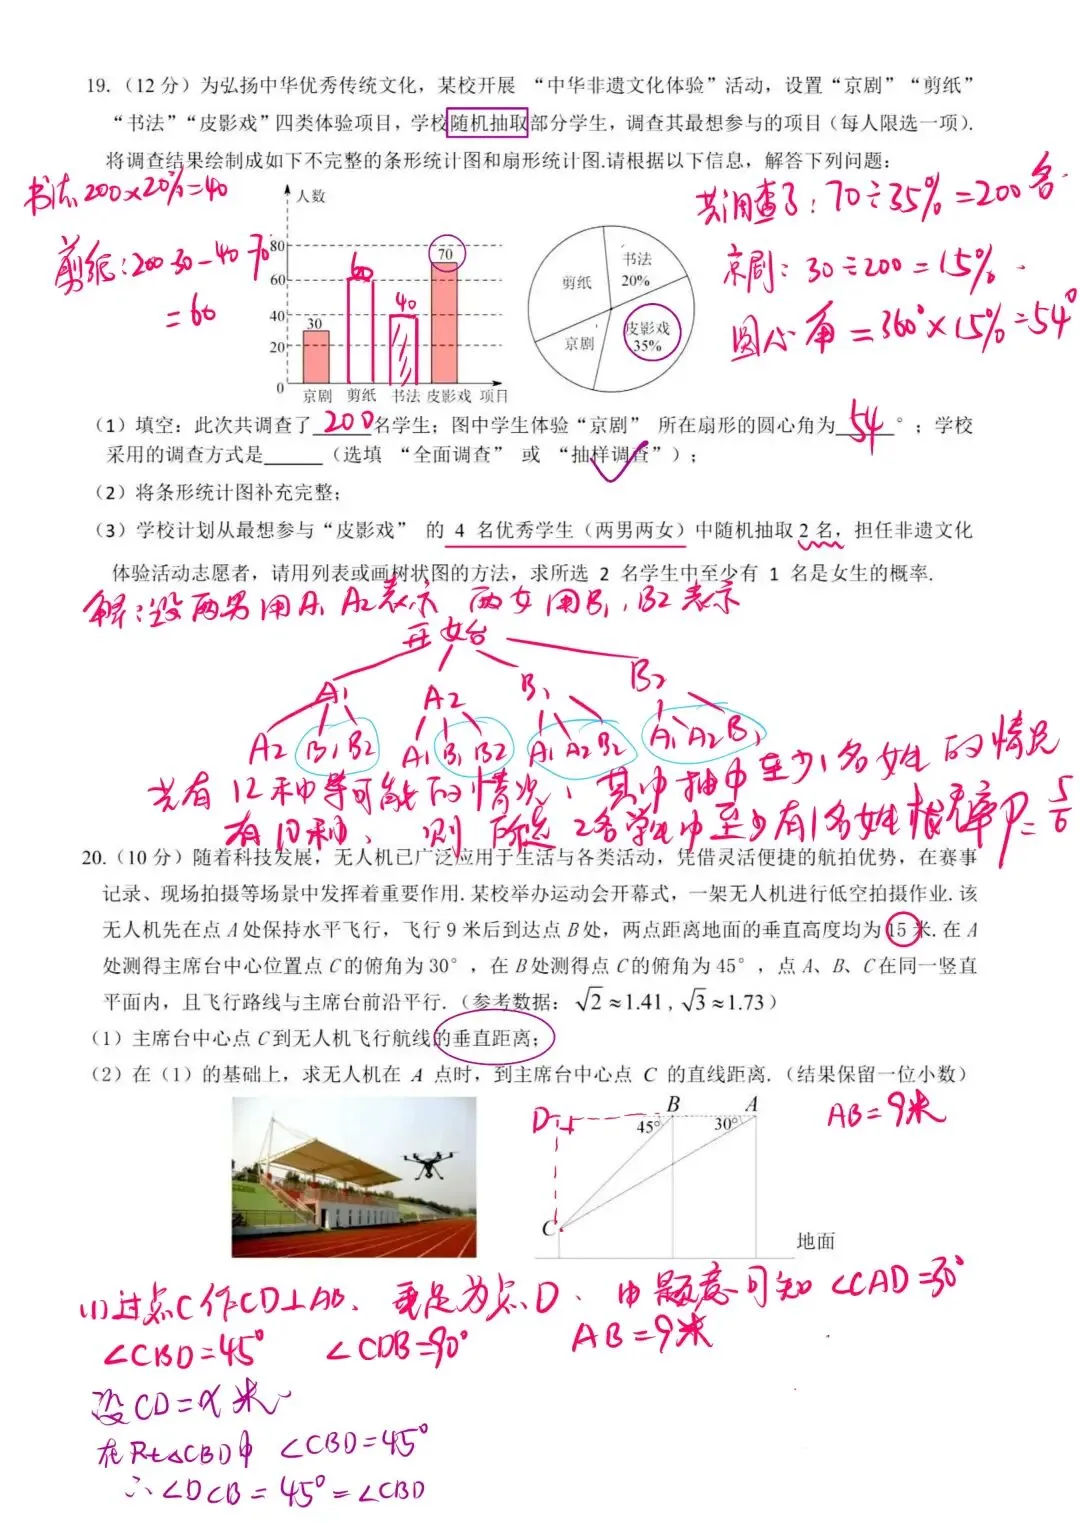 19.（12 分）为弘扬中华优秀传统文化，某校开展 “中华非遗文化体验”活动，设置“京剧”“剪纸”
“书法”“皮影戏”四类体验项目，学校随机抽取部分学生，调查其最想参与的项目（每人限选一项）.
将调查结果绘制成如下不完整的条形统计图和扇形统计图.请根据以下信息，解答下列问题：
书法:200×20%=40
剪纸:200-30-40-70
=60
人数
80
60
40
20
0
30
60
40
70
京剧 剪纸 书法 皮影戏 项目
剪纸
书法
20%
皮影戏
35%
京剧
共调查了:70÷35%=200名.
京剧:30÷200=15%.
圆心角=360°×15%=54°
（1）填空：此次共调查了200名学生；图中学生体验“京剧” 所在扇形的圆心角为54°；学校
采用的调查方式是______（选填 “全面调查” 或 “抽样调查”）；
（2）将条形统计图补充完整；
（3）学校计划从最想参与“皮影戏” 的 4 名优秀学生（两男两女）中随机抽取 2 名，担任非遗文化
体验活动志愿者，请用列表或画树状图的方法，求所选 2 名学生中至少有 1 名是女生的概率.
解:设两男用A1 A2表示 两女用B1,B2表示
开始
A1 A2 B1 B2
A2 B1 B2 A1 B1 B2 A1 A2 B2 A1 A2 B1
共有12种等可能的情况,其中抽中至少1名女生的情况
有10种、则所选2名学生中至少有1名女生概率P=5/6
20.（10 分）随着科技发展，无人机已广泛应用于生活与各类活动，凭借灵活便捷的航拍优势，在赛事
记录、现场拍摄等场景中发挥着重要作用.某校举办运动会开幕式，一架无人机进行低空拍摄作业.该
无人机先在点 A 处保持水平飞行，飞行 9 米后到达点 B 处，两点距离地面的垂直高度均为 15 米.在 A
处测得主席台中心位置点 C 的俯角为 30°，在 B 处测得点 C 的俯角为 45°，点 A、B、C 在同一竖直
平面内，且飞行路线与主席台前沿平行.（参考数据：√2≈1.41，√3≈1.73）
（1）主席台中心点 C 到无人机飞行航线的垂直距离；
（2）在（1）的基础上，求无人机在 A 点时，到主席台中心点 C 的直线距离.（结果保留一位小数）
D B A
45° 30°
C
地面
AB=9米
(1)过点C作CD⊥AB、垂足为点D、由题意可知∠CAD=30°
∠CBD=45° ∠CDB=90° AB=9米
设CD=x米
在Rt△CBD中 ∠CBD=45°
∴∠DCB=45°=∠CBD